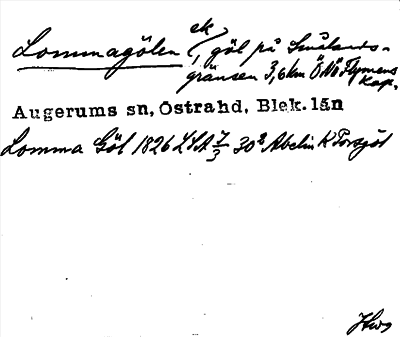 Lommagölen ek, göl på Smålands-
gränsen 3,6 km ÖNÖ Flymens
kap.
Augerums sn, Östrahd, Blek. län
Lomma Göl 1826 LSA 7/3 30² Abelin K Torsjöt